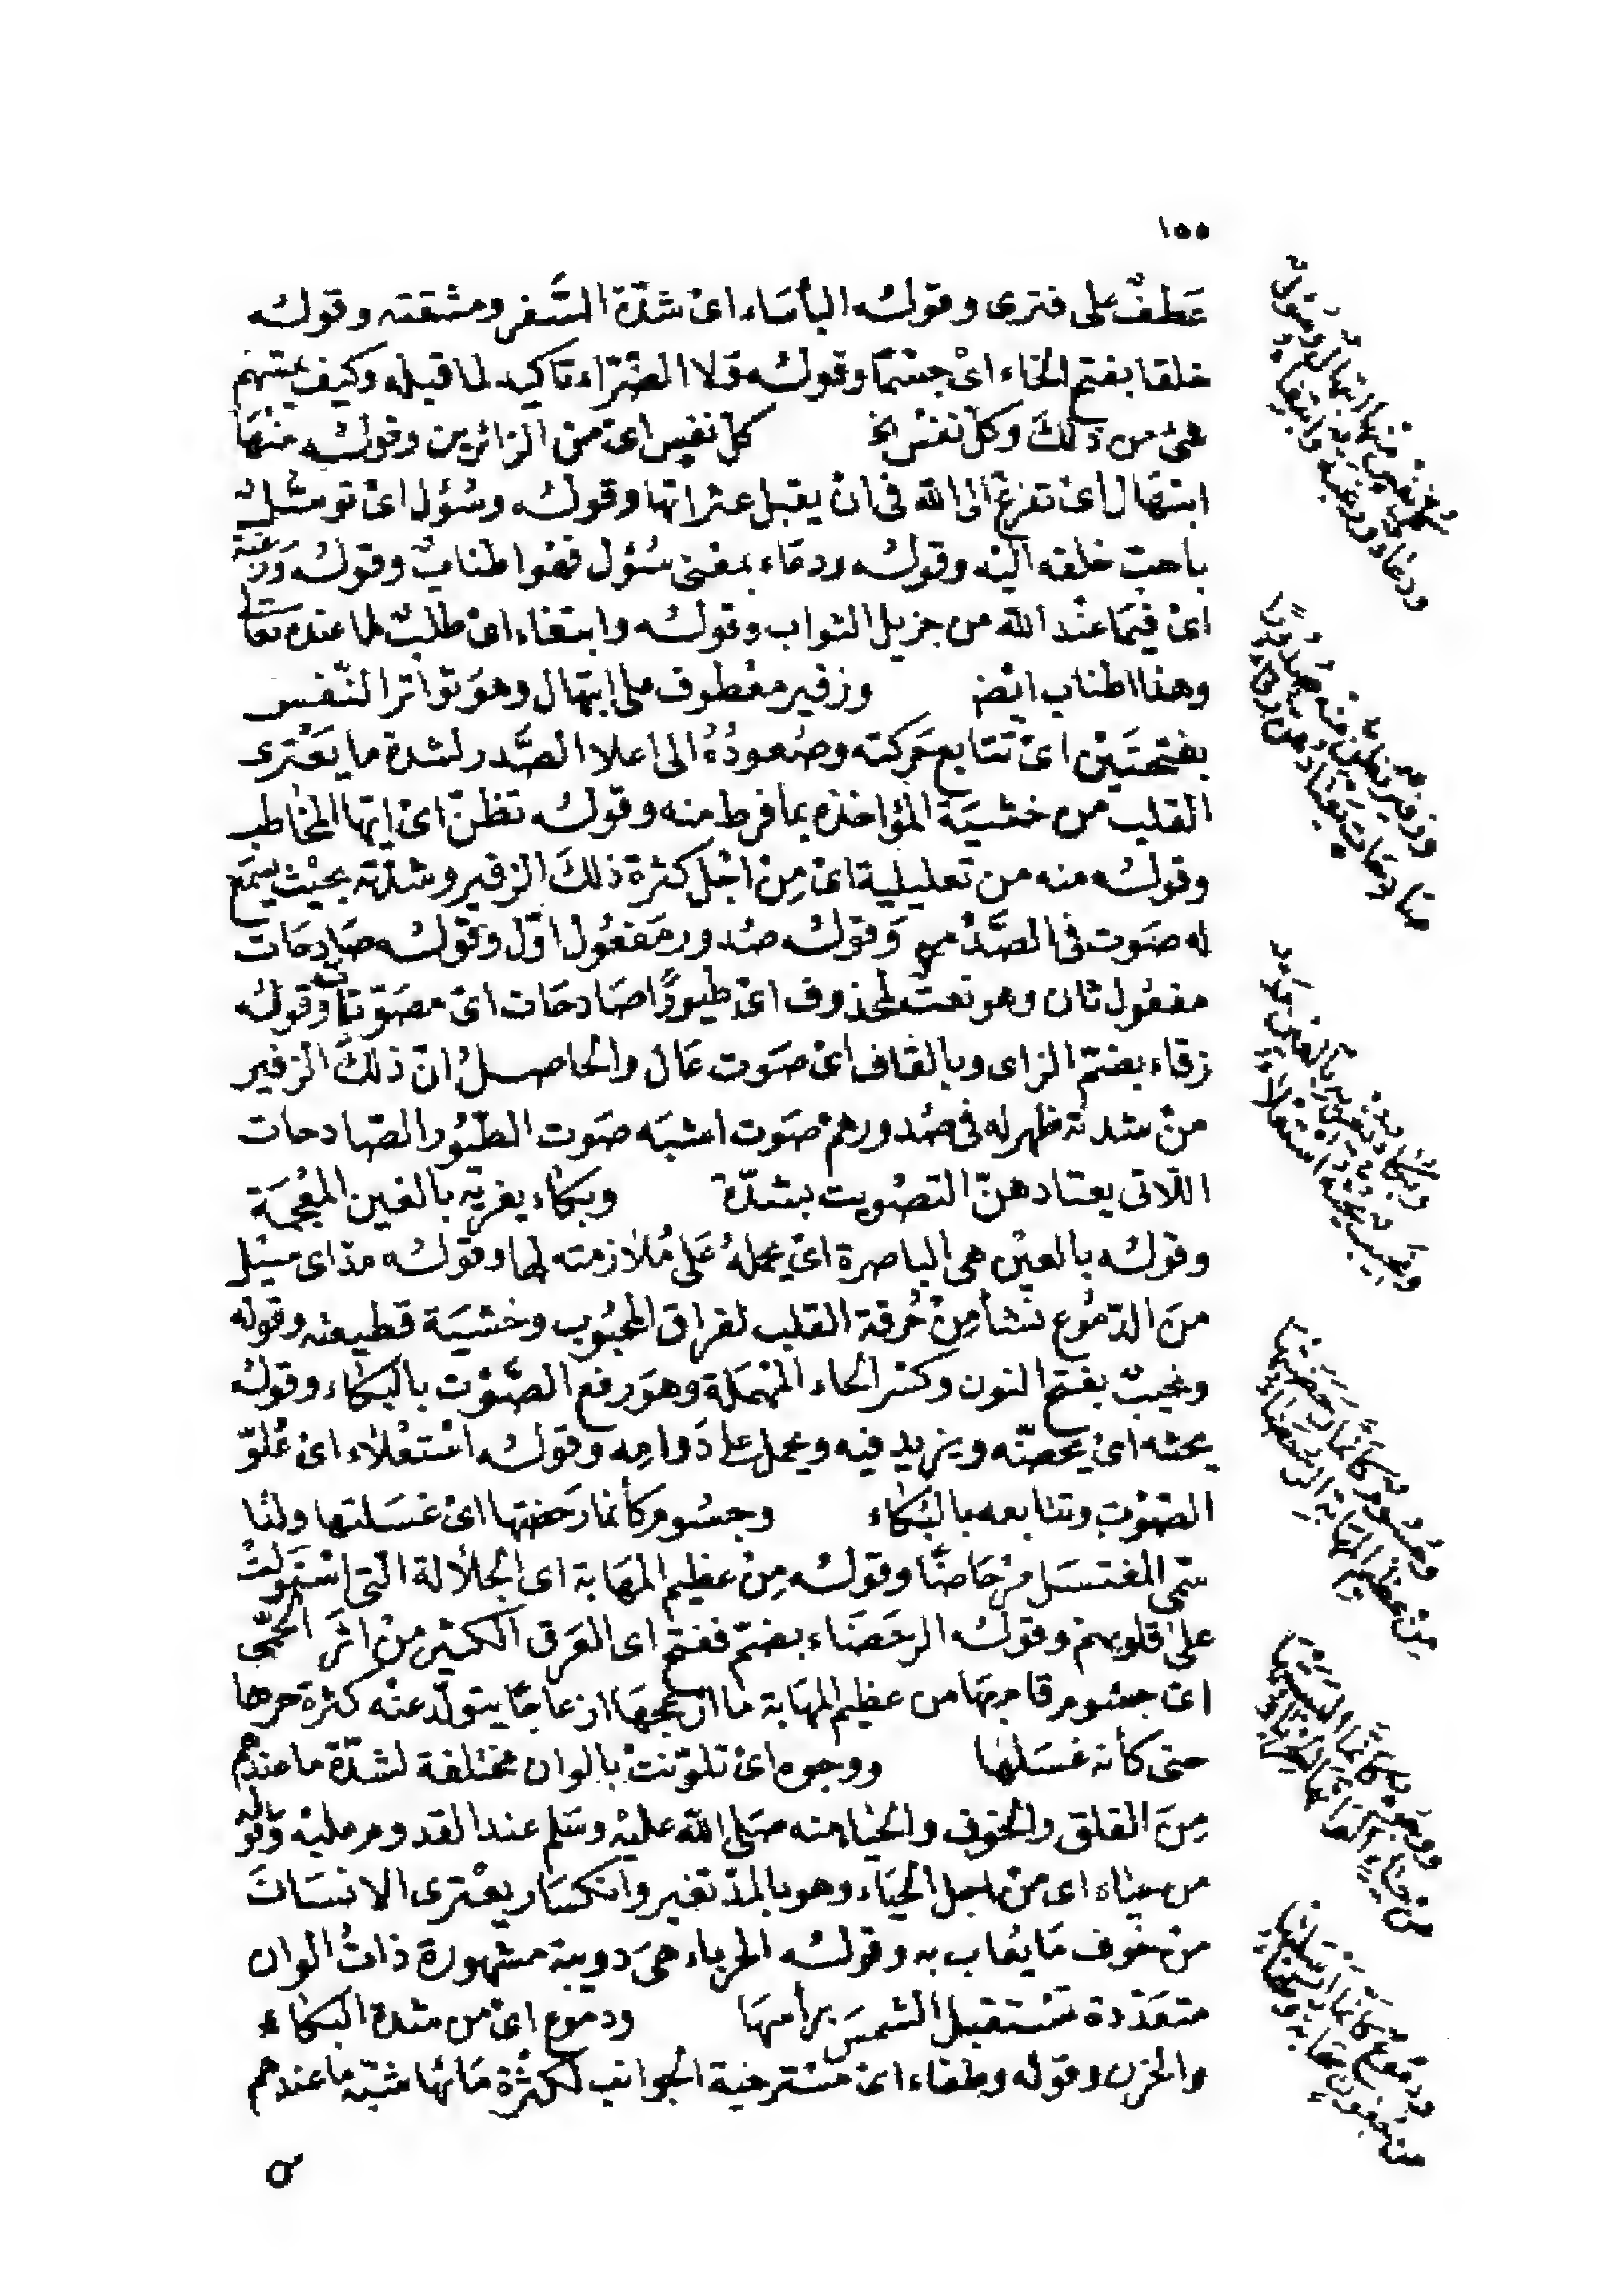 ١٥٥
عَطفٌ على فترى وقولُه البأسَاء اىْ شدّة السَّفر ومشقته وقولُه
خلقا بفتح الخاء اىْ جسْمًا وقولُه وَلا الضّرّاء تاكيد لما قبله وكيف يمسّهم
شئ من ذلكَ وكل نفسْ الخ كل نفسٍ اىْ من الزائرين وقولُه منْهَا
ابتهَال اىْ تضرع الى الله فى انْ يقبل عثراتها وقولُه وسُؤل اىْ توسّل
باحب خلقه اليْه وقولُه ودعَاء بمعْنى سُؤل فهْو اطنابٌ وقولُه وَرغبَة
اىْ فيمَا عنْد الله من جزيل الثواب وقولُه وابتغاء اىْ طلبٌ لما عندَه تعَالى
وهذا اطناب ايْضا وزفير معْطوف على ابتهال وهوَ تواتر النّفس
بفتحتَيْن اىْ تتابع حَركته وصُعودُهُ الى اعلا الصَّدر لشدة ما يَعْترى
القلب من خشيَة المؤاخذه بما فرط منه وقولُه تظنّ اىْ ايّها المخاطب
وقولُه منه من تعليلية اىْ مِنْ اجْل كثرة ذلكَ الزفير وشدّته بحيْث يسمَع
له صَوت فى الصَّدْر وَقولُه صُدور مَفعُول اوّل وقولُه صَادحَات
مفعُول ثان وهو نعتٌ لمحذوف اىْ طيورًا صَادحَات اىْ مصَوّتات وقولُه
زقاء بضمّ الزاى وبالقاف اىْ صَوت عَال والحاصلُ انّ ذلكَ الزفير
منْ شدته ظهر له فى صُدورهمْ صَوت اشبَه صَوت الطيُور الصّادحات
اللّاتى يعتادهنّ التصْويت بشدّة وبكاء يغريْه بالغين المعْجمَة
وقولُه بالعيْن هى الباصرة اىْ يحملهُ عَلى مُلازمته لها وقولُه مدّ اى سيْل
منَ الدّمُوع نشأ مِنْ حُرقة القلب لفراق المحبُوب وخشيَة قطيعته وقوله
ونحيبٌ بفتح النون وكسْر الحاء المهمَلة وهوَ رفع الصّوْت بالبكاء وقولُه
يحثه اىْ يحضّه ويزيد فيه ويحمل على دَوامِه وقولُه اسْتعْلاء اىْ عُلوّ
الصّوْت وتتابعه بالبُكاء وجسُوم كأنما رَحضتها اىْ غسَلتها ولذا
سمّى المغتسَل مرْحَاضًا وقولُه مِنْ عظيم المهَابة اى الجلالة التى استَولتْ
على قلوبهمْ وقولُه الرحَضَاء بضمّ ففتح اى العَرق الكثير منْ اثَر الحمّى
اىْ جسُوم قام بهَا من عظيم المهَابة ما ازعجهَا ازعاجًا يتولّد عنْه كثرة حرها
حتى كأنه غسَلهَا ووجوه اىْ تلوّنتْ بالوان مختلفة لشدّة ما عندهُم
مِنَ القلق والخوْف والحيَاء منه صَلى الله عليْه وسَلم عند القدوم عليْه وَقوله
من حيَاء اى منْ اجل الحيَاء وهو بالمدّ تغير وانكسَار يعْترى الانسَانَ
منْ خَوف مَا يُعاب به وقولُه الحرباء هىَ دويبة مشهورة ذاتُ الوان
متعَدّدة تسْتقبل الشمسَ برأسهَا ودموع اىْ من شدة البكاء
والحزن وقوله وطفاء اىْ مسْترخية الجوانب لكثْرة مَائها شبّه ما عندهم
كلّ نفس منها ابتهال وسؤل
ودعاء ورغبة وابتغاء
وزفير تظنّ منه صدورًا
صادحات يعتادهنّ زقاء
وبكاء يغريه بالعين مدّ
ونحيب يحثه استعلاء
وجسوم كأنما رحضتها
من عظيم المهابة الرحضاء
ووجوه كأنما البستها
من حياء الوانها الحرباء
ودموع كأنما ارسلتها
من جفون سحابة وطفاء